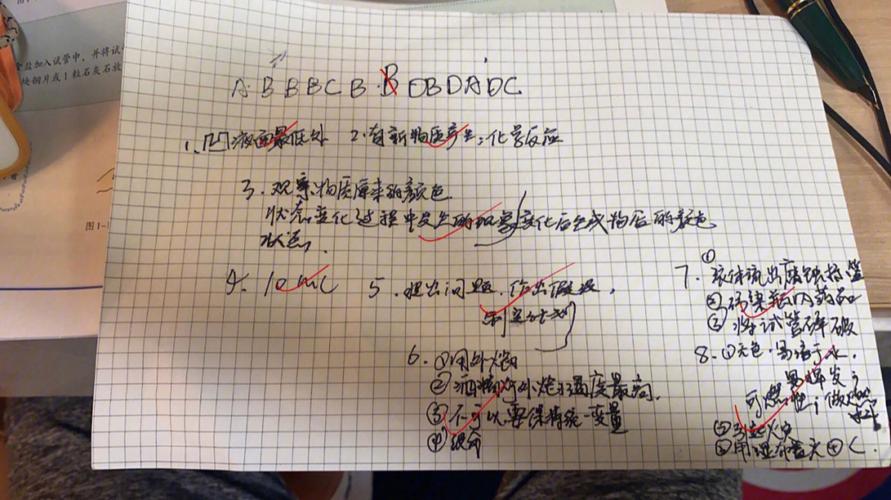 盐加入试管中，并将试
铜片或1粒石灰石放
图1-
A B B B C B B D B D A D C
1、凹液面最低处 2.有新物质产生；化学反应
3.观察物质原来的颜色
状态变化过程中发生的现象变化后生成物后的颜色
状态.
4. 10mL 5.提出问题.作出假设,
制定计划
6.①用外焰
②酒精灯外焰温度最高.
③不可以要保持统一变量
④
7.①液体流出腐蚀标签
②污染瓶内药品
③将试管碎破
8.①无色.易溶于水.
易挥发;
可燃性;做燃料
②
③用湿布盖灭④C